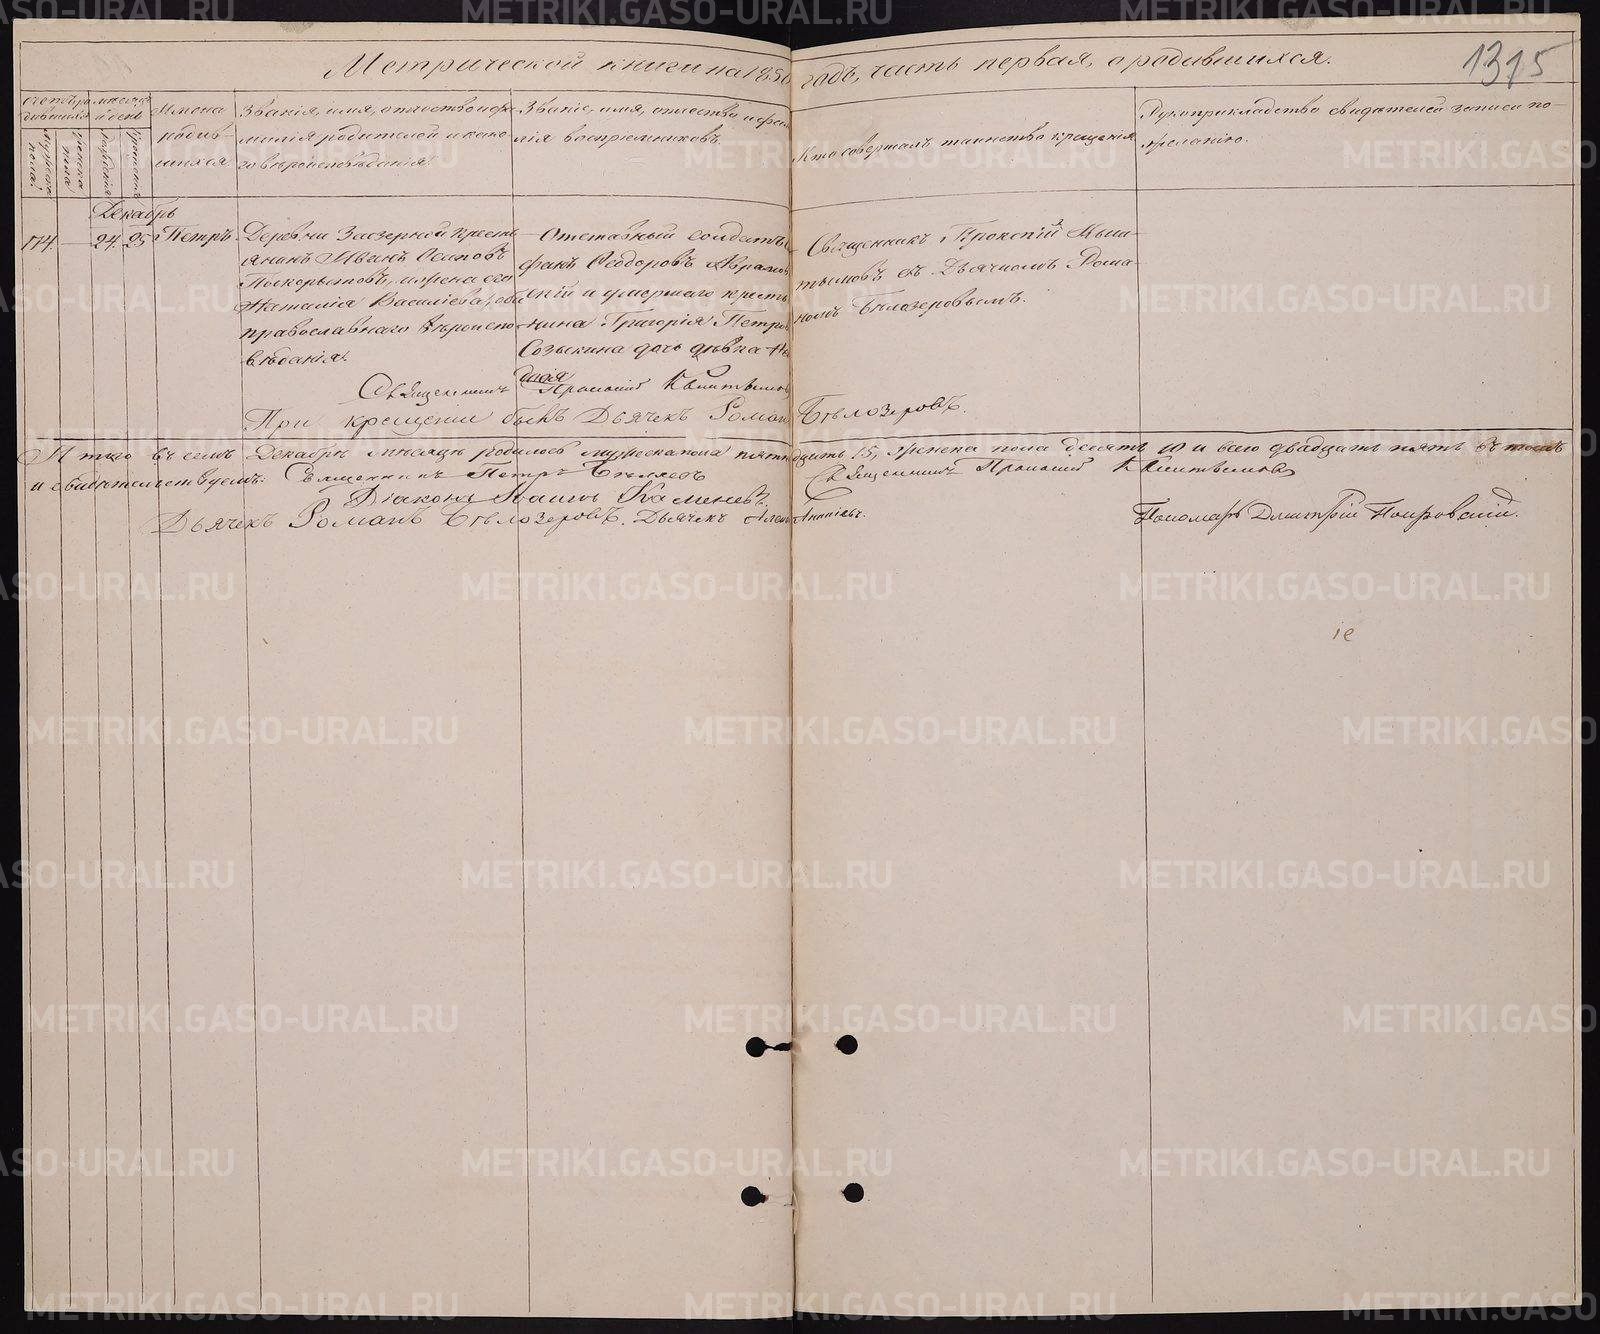 Метрической книги на 1850 годъ, часть первая, о родившихся.
1315
Счетъ ро-
дившихся
Мужеска
пола.
Женска
пола
мѣсяцъ
и день
Рожденія
Крещенія
Имена
родив-
шихся
Званія, имя, отчество и фа-
милія родителей и како-
го вѣроисповѣданія.
Званіе, имя, отчество и фами-
лія воспріемниковъ.
Кто совершалъ таинство крещенія
Рукоприкладство свидѣтелей записи по-
желанію.
Декабрь
174. — 24. 25 Петръ
Деревни Заозерной кресть-
янинъ Иванъ Осиповъ
и жена его
Наталія Васильева, оба
православнаго вѣроиспо-
вѣданія.
Отставный солдатъ
Ѳеодоровъ
и умершаго кресть-
янина Григорія Петрова
Созыкина дочь дѣвка
Священникъ Прокопій
съ Дьячкомъ Рома-
номъ Бѣлозеровымъ.
Священникъ Прокопій
При крещеніи былъ Дьячекъ Романъ Бѣлозеровъ.
Итого въ семъ Декабрѣ мѣсяцѣ родилось мужеска пола пятнадцать 15, женска пола десять 10 и всего двадцать пять въ томъ
и свидѣтельствуемъ: Священникъ Петръ Бѣляевъ Священникъ Прокопій
Діаконъ Каменевъ.
Дьячекъ Романъ Бѣлозеровъ. Дьячекъ
Пономарь Димитрій Покровскій.
METRIKI.GASO-URAL.RU